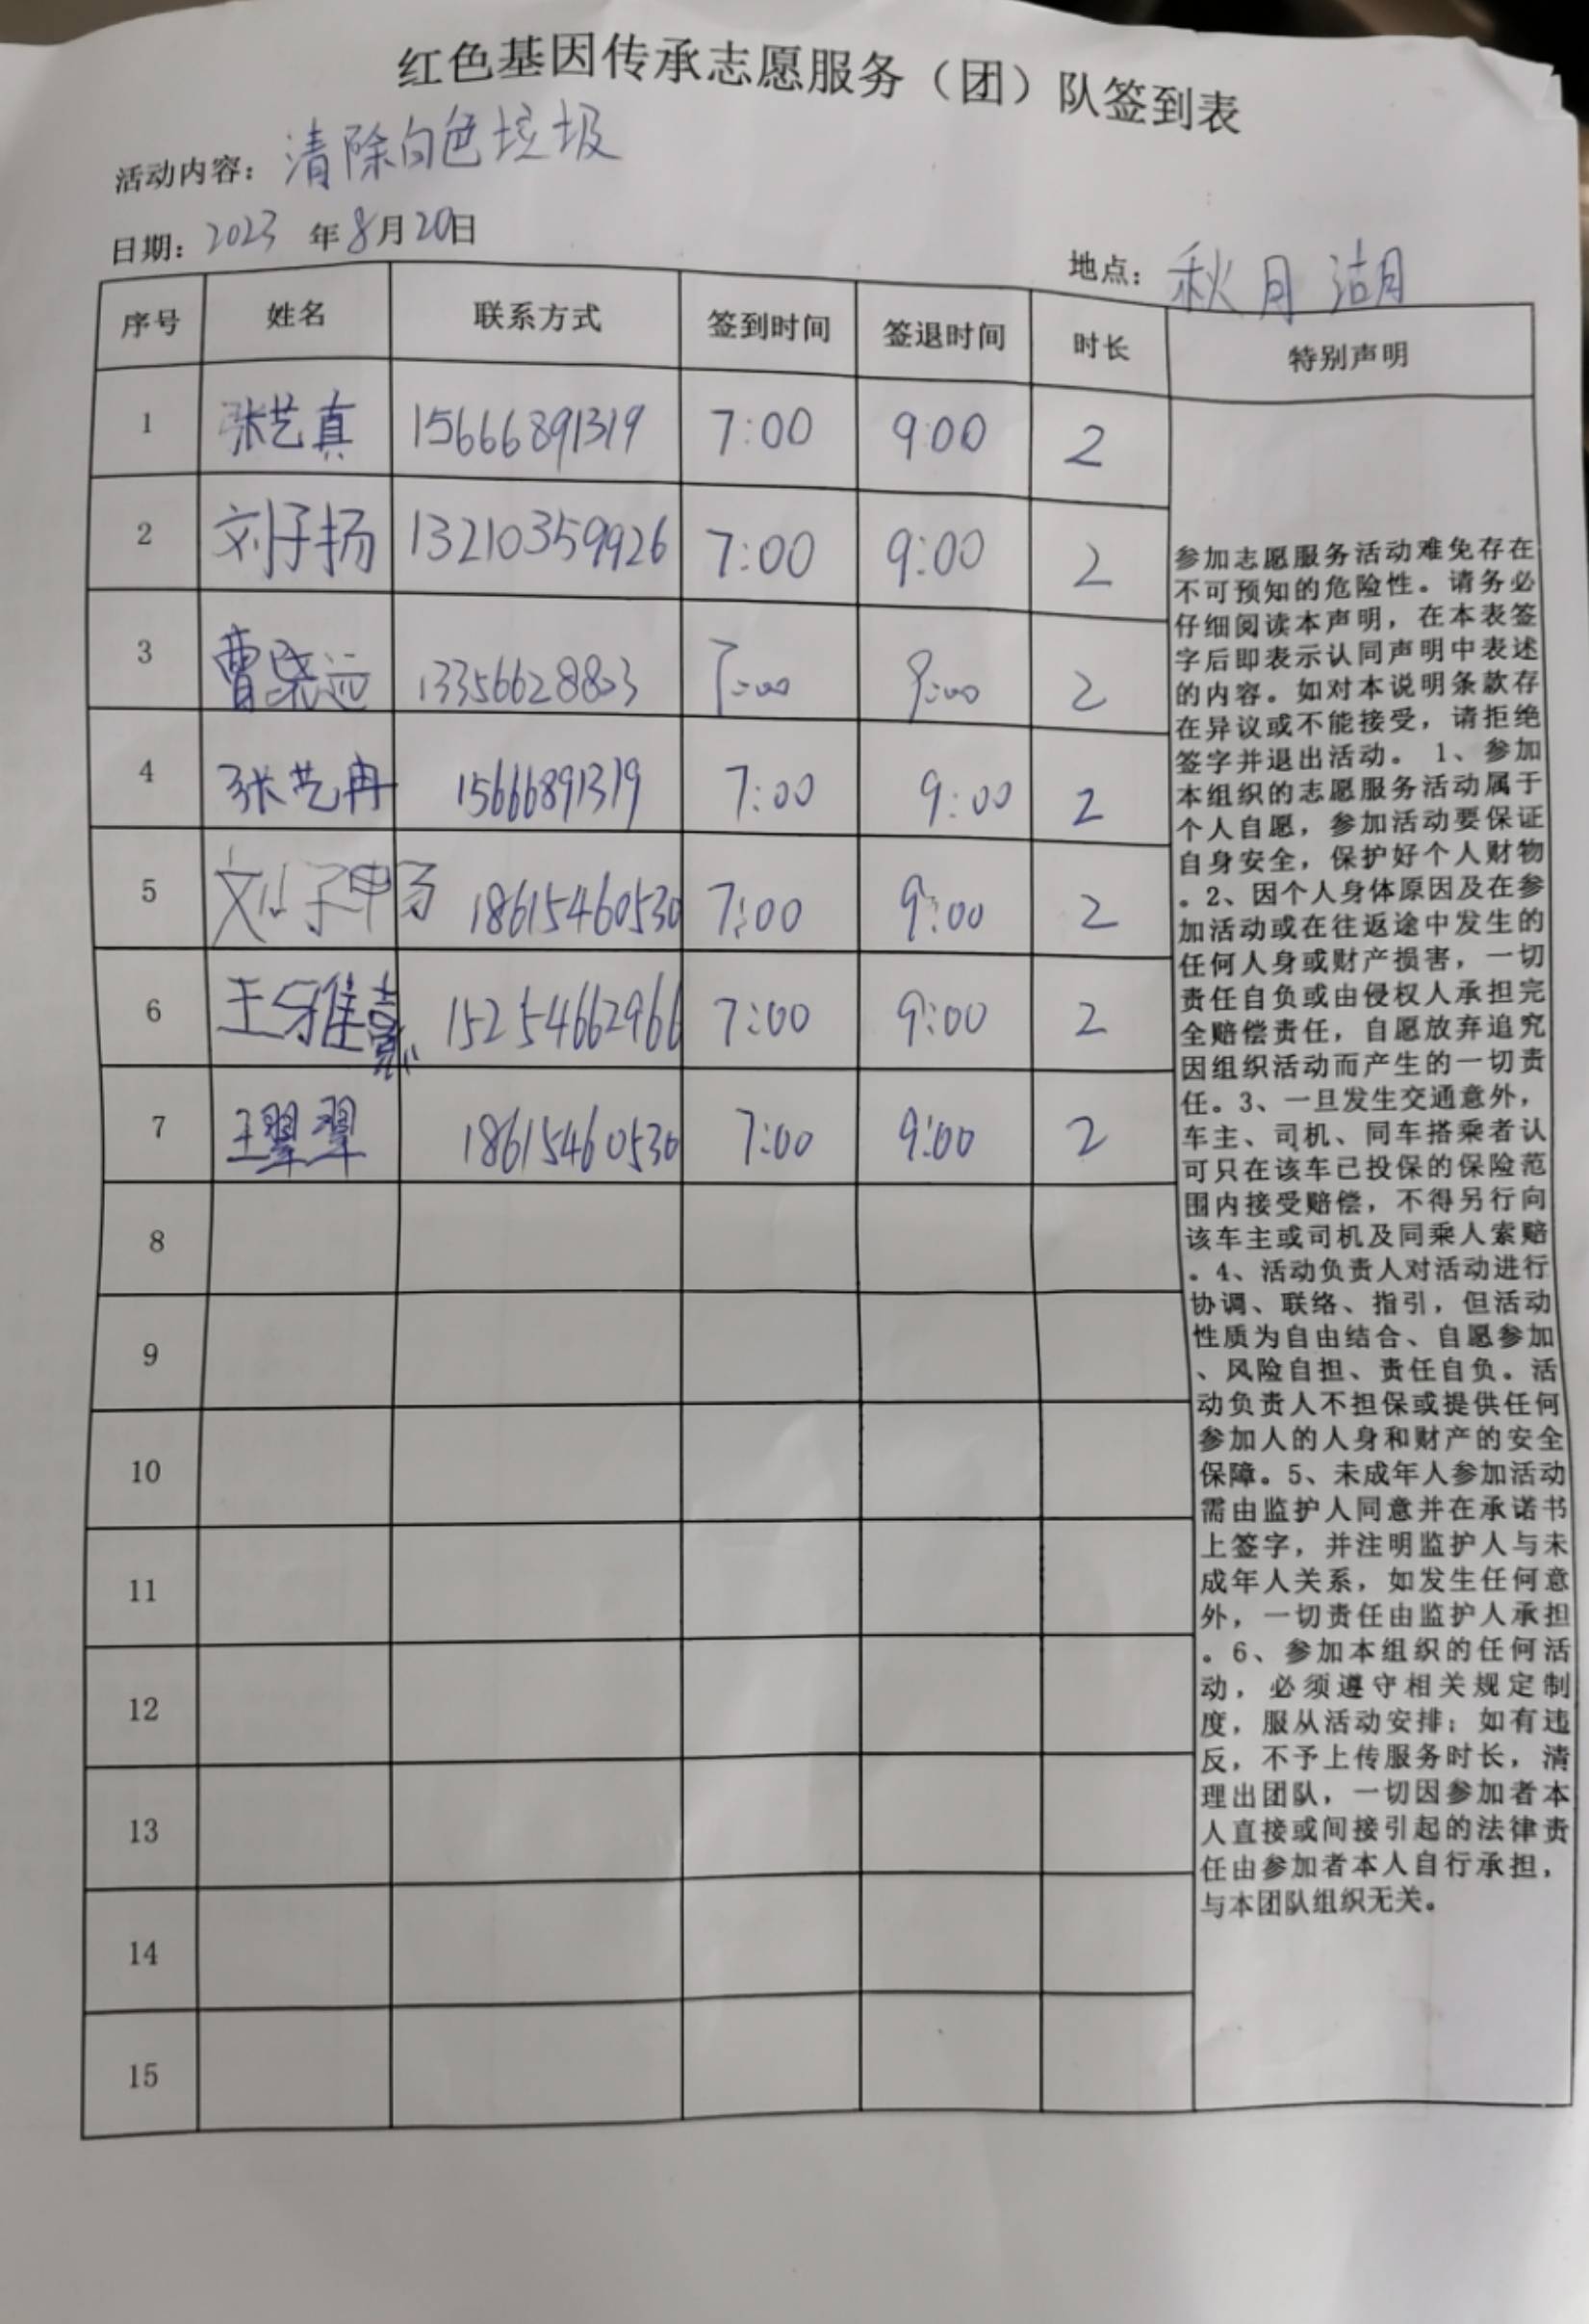 红色基因传承志愿服务（团）队签到表
活动内容：清除白色垃圾
日期：2023 年8月20日
地点：秋月湖
序号 姓名 联系方式 签到时间 签退时间 时长 特别声明
1 张艺真 15666891319 7:00 9:00 2
2 刘子扬 13210359926 7:00 9:00 2
3 13356628803 7:00 9:00 2
4 张艺冉 15666891319 7:00 9:00 2
5 刘子畅 18615460530 7:00 9:00 2
6 王雅熹 15254662966 7:00 9:00 2
7 王翠翠 18615460530 7:00 9:00 2
8
9
10
11
12
13
14
15
参加志愿服务活动难免存在
不可预知的危险性。请务必
仔细阅读本声明，在本表签
字后即表示认同声明中表述
的内容。如对本说明条款存
在异议或不能接受，请拒绝
签字并退出活动。 1、参加
本组织的志愿服务活动属于
个人自愿，参加活动要保证
自身安全，保护好个人财物
。2、因个人身体原因及在参
加活动或在往返途中发生的
任何人身或财产损害，一切
责任自负或由侵权人承担完
全赔偿责任，自愿放弃追究
因组织活动而产生的一切责
任。3、一旦发生交通意外，
车主、司机、同车搭乘者认
可只在该车已投保的保险范
围内接受赔偿，不得另行向
该车主或司机及同乘人索赔
。4、活动负责人对活动进行
协调、联络、指引，但活动
性质为自由结合、自愿参加
、风险自担、责任自负。活
动负责人不担保或提供任何
参加人的人身和财产的安全
保障。5、未成年人参加活动
需由监护人同意并在承诺书
上签字，并注明监护人与未
成年人关系，如发生任何意
外，一切责任由监护人承担
。6、参加本组织的任何活
动，必须遵守相关规定制
度，服从活动安排；如有违
反，不予上传服务时长，清
理出团队，一切因参加者本
人直接或间接引起的法律责
任由参加者本人自行承担，
与本团队组织无关。